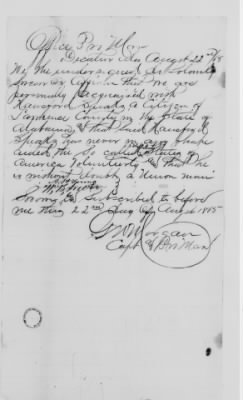 Office Pro Mar
Decatur Ala August 22nd /65
We, the undersigned do solemnly
swear & affirm that we are
personally acquainted with
Hansford Speaks a Citizen of
Lawrence County in the State of
Alabama & that said Hansford
Speaks has never in any shape
aided the so called States of
America Voluntarily & that he
is without doubt a Union man
Sworn to & Subscribed to before
me this 22nd Day of August 1865
Morgan
Capt & Pro Mar